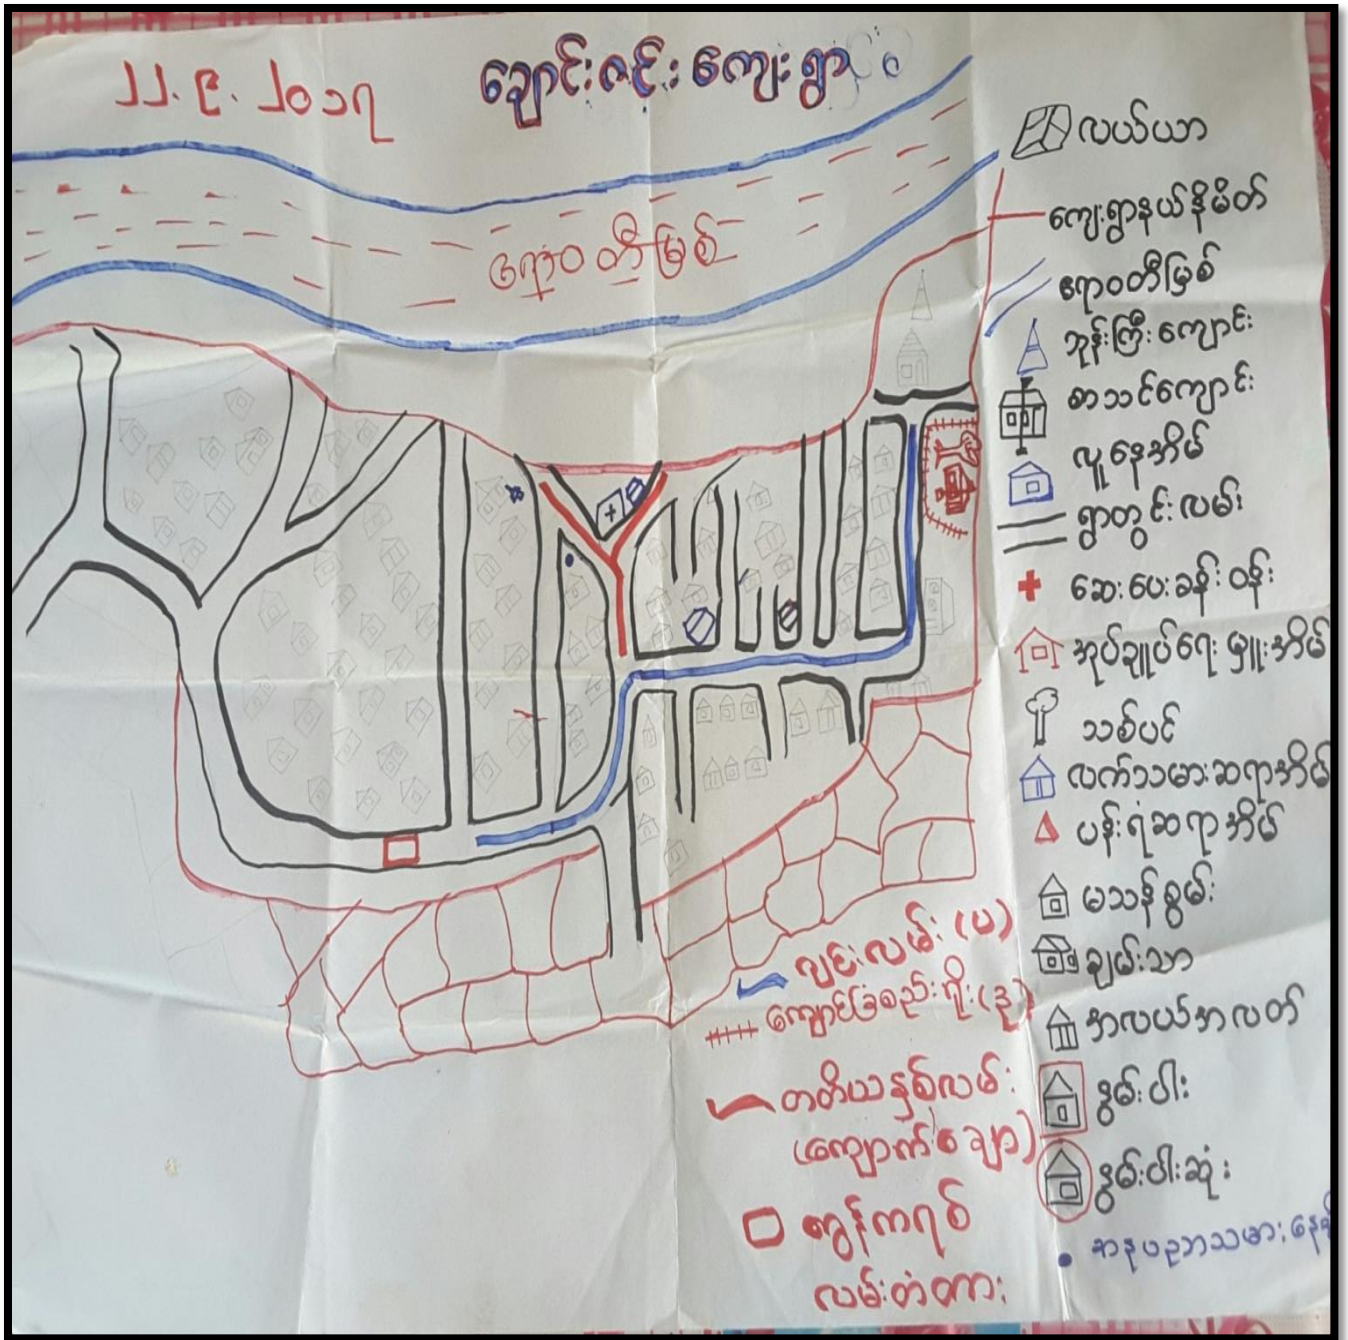 ၂၂.၉.၂၀၁၇
ချောင်းဇင်းကျေးရွာ
ဧရာဝတီမြစ်
လယ်ယာ
ကျေးရွာနယ်နိမိတ်
ဧရာဝတီမြစ်
ဘုန်းကြီးကျောင်း
စာသင်ကျောင်း
လူနေအိမ်
ရွာတွင်းလမ်း
ဆေးပေးခန်းဝန်း
အုပ်ချုပ်ရေးမှူးအိမ်
သစ်ပင်
လက်သမားဆရာအိမ်
ပန်းရံဆရာအိမ်
မသန်စွမ်း
ချမ်းသာ
အလယ်အလတ်
နွမ်းပါး
နွမ်းပါးဆုံး
လျင်းလမ်း (ပ)
ကျောင်းခြံစည်းရိုး (ဒု)
တတိယနှစ်လမ်း
(ကျောက်ချော)
ကွန်ကရစ်
လမ်းတံတား